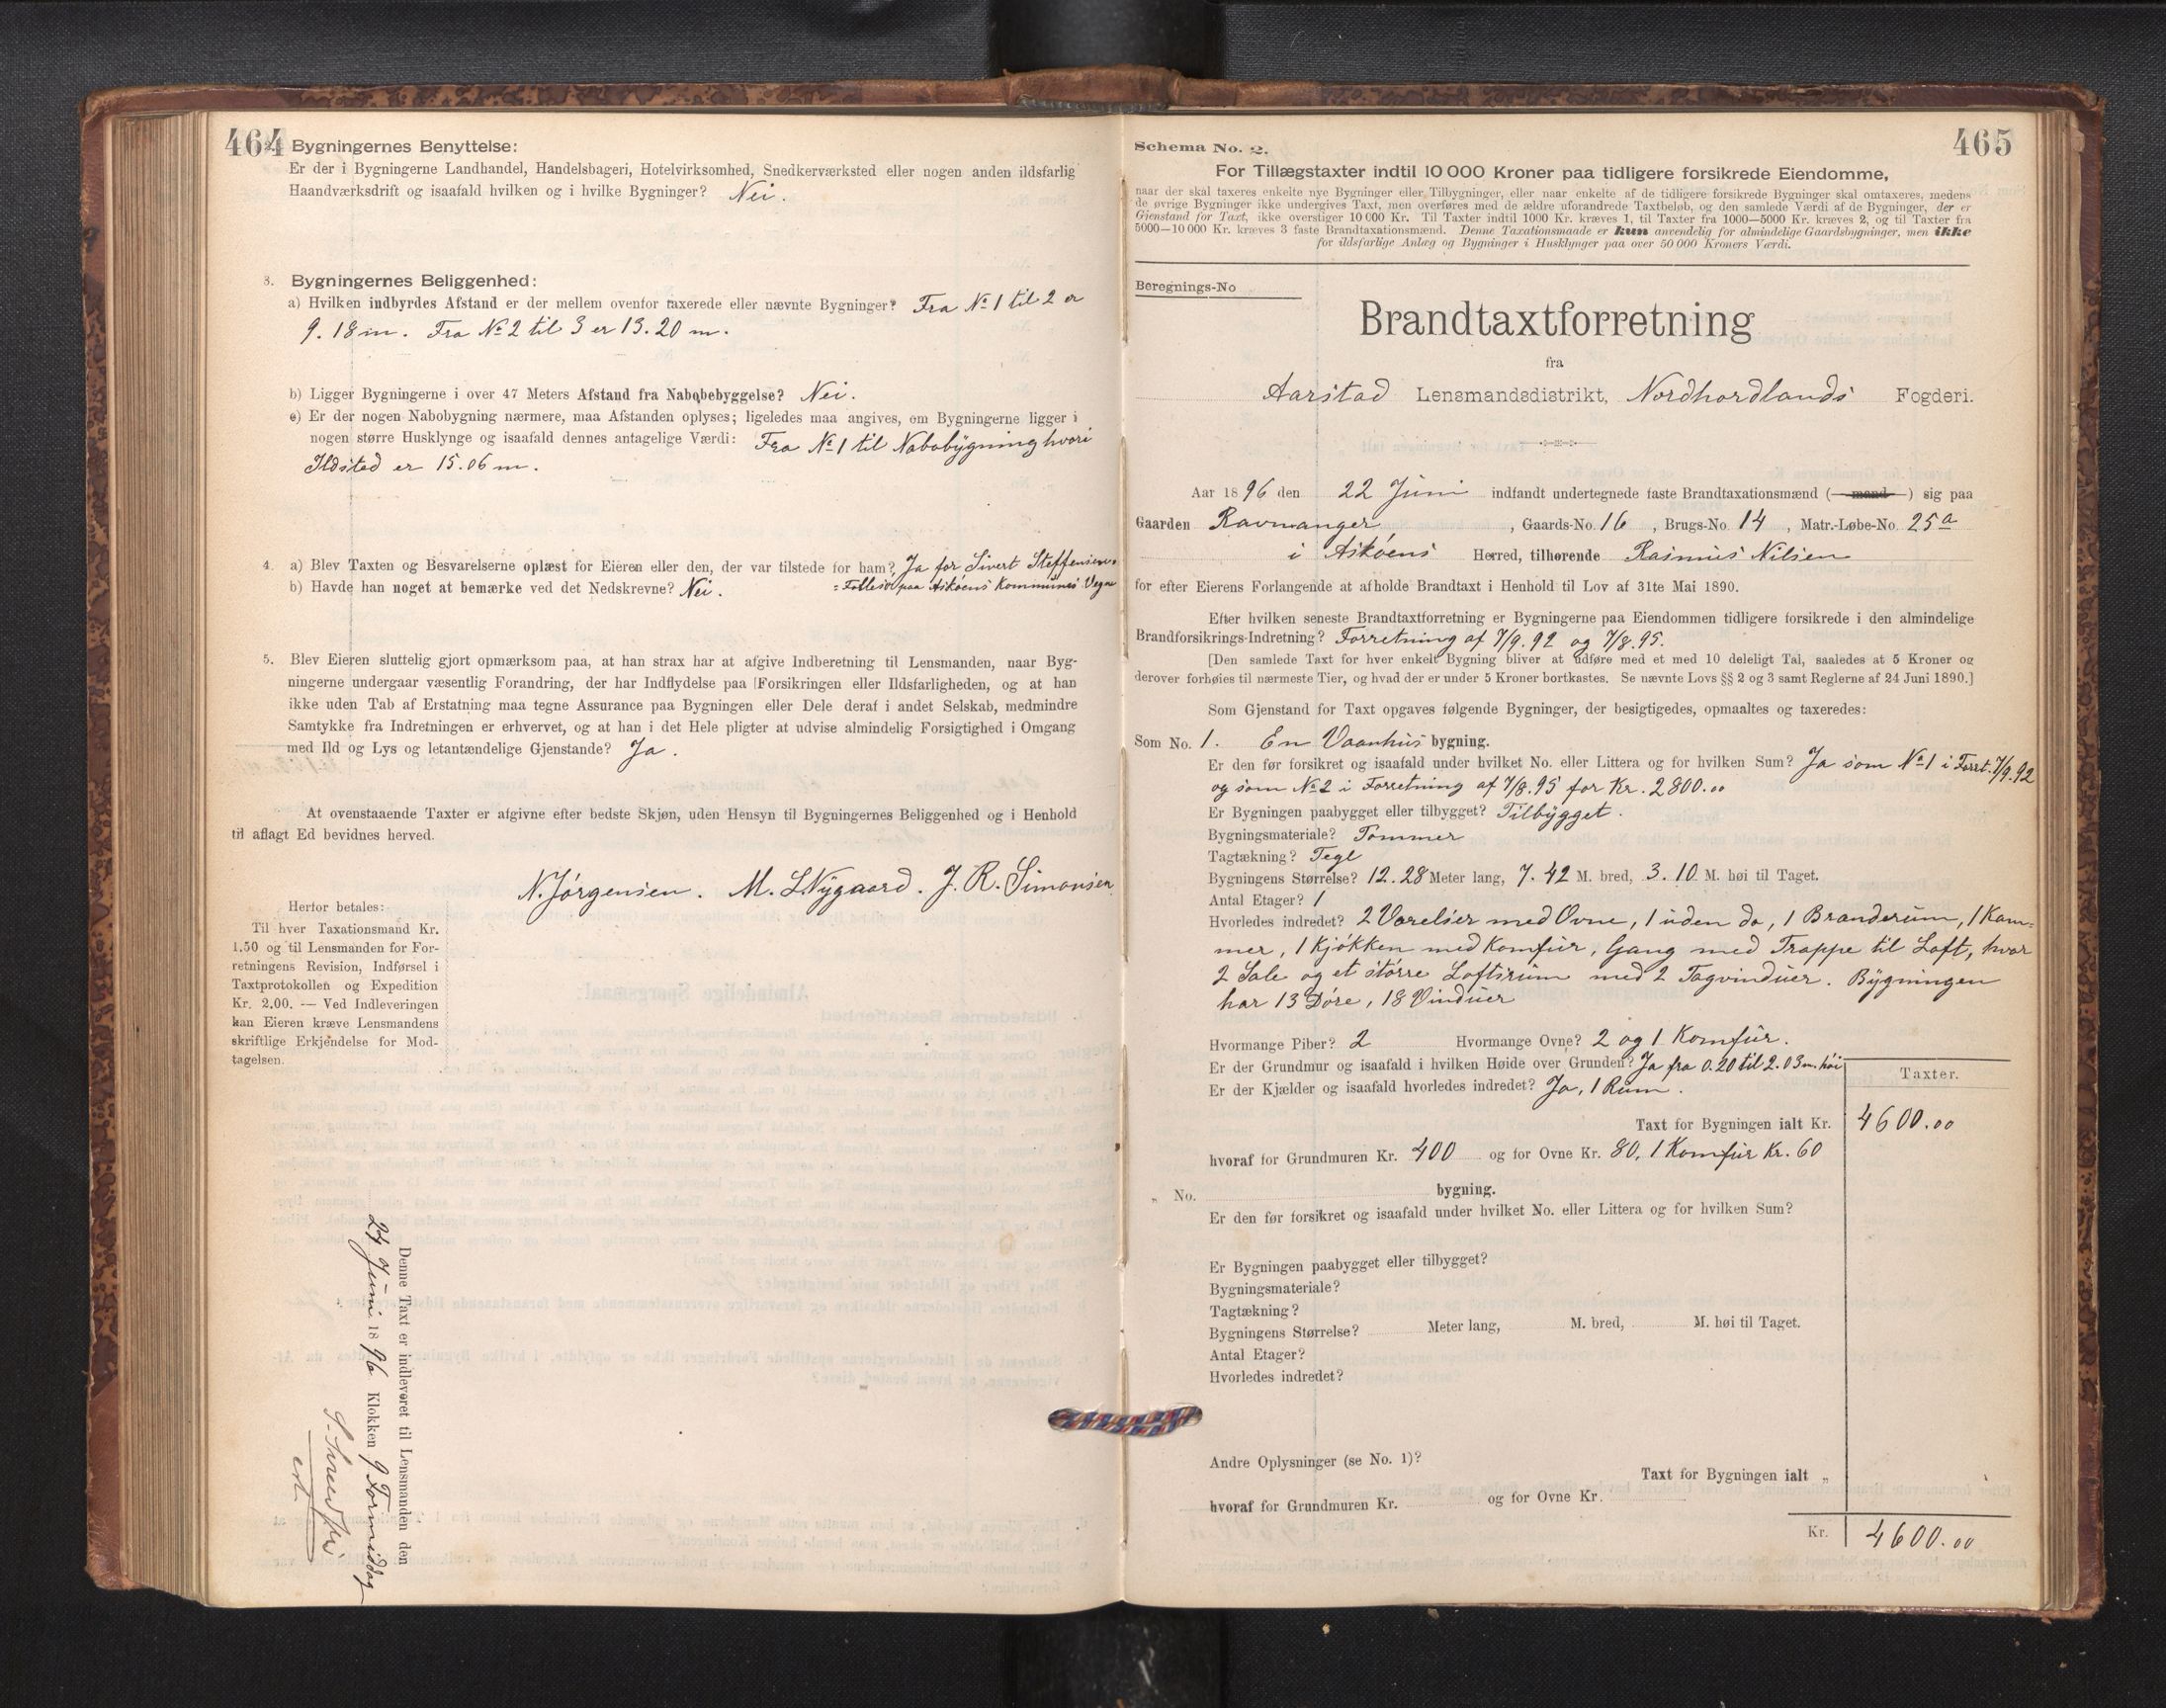 464
Bygningernes Benyttelse:
Er der i Bygningerne Landhandel, Handelsbageri, Hotelvirksomhed, Snedkerværksted eller nogen anden ildsfarlig
Haandværksdrift og isaafald hvilken og i hvilke Bygninger? Nei.
3. Bygningernes Beliggenhed:
a) Hvilken indbyrdes Afstand er der mellem ovenfor taxerede eller nævnte Bygninger? Fra No 1 til 2 er
9.18 m. Fra No 2 til 3 er 13.20 m.
b) Ligger Bygningerne i over 47 Meters Afstand fra Nabobebyggelse? Nei.
c) Er der nogen Nabobygning nærmere, maa Afstanden oplyses; ligeledes maa angives, om Bygningerne ligger i
nogen større Husklynge og isaafald dennes antagelige Værdi: Fra No 1 til Nabobygning hvori
Ildsted er 15.06 m.
4. a) Blev Taxten og Besvarelserne oplæst for Eieren eller den, der var tilstede for ham? Ja for Sivert Steffensen
b) Havde han noget at bemærke ved det Nedskrevne? Nei. = Follesø paa Askøens Kommunes Vegne
5. Blev Eieren sluttelig gjort opmærksom paa, at han strax har at afgive Indberetning til Lensmanden, naar Byg-
ningerne undergaar væsentlig Forandring, der har Indflydelse paa Forsikringen eller Ildsfarligheden, og at han
ikke uden Tab af Erstatning maa tegne Assurance paa Bygningen eller Dele deraf i andet Selskab, medmindre
Samtykke fra Indretningen er erhvervet, og at han i det Hele pligter at udvise almindelig Forsigtighed i Omgang
med Ild og Lys og letantændelige Gjenstande? Ja.
At ovenstaaende Taxter er afgivne efter bedste Skjøn, uden Hensyn til Bygningernes Beliggenhed og i Henhold
til aflagt Ed bevidnes herved.
N. Jørgensen. M. L Nygaard. J. R. Simonsen
Herfor betales:
Til hver Taxationsmand Kr.
1.50 og til Lensmanden for For-
retningens Revision, Indførsel i
Taxtprotokollen og Expedition
Kr. 2.00. — Ved Indleveringen
kan Eieren kræve Lensmandens
skriftlige Erkjendelse for Mod-
tagelsen.
Denne Taxt er indleveret til Lensmanden den
24 Juni 1896 Klokken 9 Formiddag
465
Schema No. 2.
For Tillægstaxter indtil 10 000 Kroner paa tidligere forsikrede Eiendomme,
naar der skal taxeres enkelte nye Bygninger eller Tilbygninger, eller naar enkelte af de tidligere forsikrede Bygninger skal omtaxeres, medens
de øvrige Bygninger ikke undergives Taxt, men overføres med de ældre uforandrede Taxtbeløb, og den samlede Værdi af de Bygninger, der er
Gjenstand for Taxt, ikke overstiger 10 000 Kr. Til Taxter indtil 1000 Kr. kræves 1, til Taxter fra 1000—5000 Kr. kræves 2, og til Taxter fra
5000—10 000 Kr. kræves 3 faste Brandtaxationsmænd. Denne Taxationsmaade er kun anvendelig for almindelige Gaardsbygninger, men ikke
for ildsfarlige Anlæg og Bygninger i Husklynger paa over 50 000 Kroners Værdi.
Beregnings-No
Brandtaxtforretning
fra
Aarstad Lensmandsdistrikt, Nordhordlands Fogderi.
Aar 1896 den 22 Juni indfandt undertegnede faste Brandtaxationsmænd (—mand—) sig paa
Gaarden Ravnanger, Gaards-No. 16, Brugs-No. 14, Matr.-Løbe-No. 25a
i Askøens Herred, tilhørende Rasmus Nilsen
for efter Eierens Forlangende at afholde Brandtaxt i Henhold til Lov af 31te Mai 1890.
Efter hvilken seneste Brandtaxtforretning er Bygningerne paa Eiendommen tidligere forsikrede i den almindelige
Brandforsikrings-Indretning? Forretning af 7/9.92 og 7/8.95.
[Den samlede Taxt for hver enkelt Bygning bliver at udføre med et med 10 deleligt Tal, saaledes at 5 Kroner og
derover forhøies til nærmeste Tier, og hvad der er under 5 Kroner bortkastes. Se nævnte Lovs §§ 2 og 3 samt Reglerne af 24 Juni 1890.]
Som Gjenstand for Taxt opgaves følgende Bygninger, der besigtigedes, opmaaltes og taxeredes:
Som No. 1. En Vaanhus bygning.
Er den før forsikret og isaafald under hvilket No. eller Littera og for hvilken Sum? Ja som No 1 i Forret. 7/9.92
og som No 2 i Forretning af 7/8.95 for Kr. 2800.00
Er Bygningen paabygget eller tilbygget? Tilbygget.
Bygningsmateriale? Tømmer
Tagtækning? Tegl
Bygningens Størrelse? 12.28 Meter lang, 7.42 M. bred, 3.10 M. høi til Taget.
Antal Etager? 1
Hvorledes indredet? 2 Værelser med Ovne, 1 uden do, 1 Branderum, 1 Kam-
mer, 1 Kjøkken med Komfur, Gang med Trappe til Loft, hvor
2 Sale og et større Loftsrum med 2 Tagvinduer. Bygningen
har 13 Døre, 18 Vinduer
Hvormange Piber? 2 Hvormange Ovne? 2 og 1 Komfur.
Er der Grundmur og isaafald i hvilken Høide over Grunden? Ja fra 0.20 til 2.03 m. høi
Er der Kjælder og isaafald hvorledes indredet? Ja, 1 Rum.
Taxter.
Taxt for Bygningen ialt Kr. 4600.00
hvoraf for Grundmuren Kr. 400 og for Ovne Kr. 80, 1 Komfur Kr. 60
„ No. bygning.
Er den før forsikret og isaafald under hvilket No. eller Littera og for hvilken Sum?
Er Bygningen paabygget eller tilbygget?
Bygningsmateriale?
Tagtækning?
Bygningens Størrelse? Meter lang, M. bred, M. høi til Taget.
Antal Etager?
Hvorledes indredet?
Andre Oplysninger (se No. 1)?
Taxt for Bygningen ialt „
hvoraf for Grundmuren Kr. og for Ovne Kr.
Kr. 4600.00